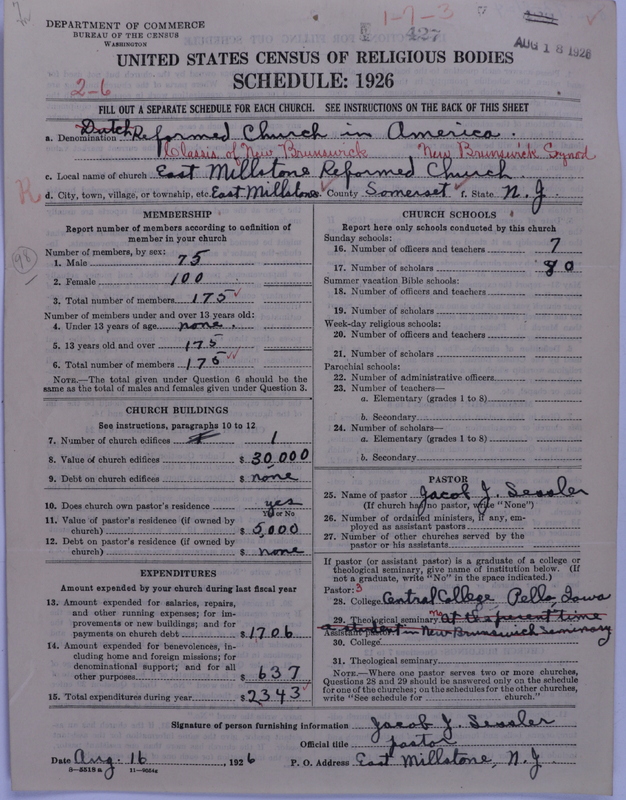 1-7-3
427
DEPARTMENT OF COMMERCE
BUREAU OF THE CENSUS
WASHINGTON
AUG 18 1926
UNITED STATES CENSUS OF RELIGIOUS BODIES
SCHEDULE: 1926
2-6
FILL OUT A SEPARATE SCHEDULE FOR EACH CHURCH. SEE INSTRUCTIONS ON THE BACK OF THIS SHEET
a. Denomination Dutch Reformed Church in America.
Classis of New Brunswick New Brunswick Synod
c. Local name of church East Millstone Reformed Church
R d. City, town, village, or township, etc. East Millstone County Somerset f. State N. J
98
MEMBERSHIP
Report number of members according to definition of
member in your church
Number of members, by sex:
1. Male 75
2. Female 100
3. Total number of members 175
Number of members under and over 13 years old:
4. Under 13 years of age none.
5. 13 years old and over 175
6. Total number of members 175
NOTE.—The total given under Question 6 should be the
same as the total of males and females given under Question 3.
CHURCH BUILDINGS
See instructions, paragraphs 10 to 12
7. Number of church edifices 1
8. Value of church edifices $ 30,000
9. Debt on church edifices $ none
10. Does church own pastor's residence yes
Yes or No
11. Value of pastor's residence (if owned by
church) $ 5,000
12. Debt on pastor's residence (if owned by
church) $ none
EXPENDITURES
Amount expended by your church during last fiscal year
13. Amount expended for salaries, repairs,
and other running expenses; for im-
provements or new buildings; and for
payments on church debt $ 1706
14. Amount expended for benevolences, in-
cluding home and foreign missions; for
denominational support; and for all
other purposes $ 637
15. Total expenditures during year $ 2343
CHURCH SCHOOLS
Report here only schools conducted by this church
Sunday schools:
16. Number of officers and teachers 7
17. Number of scholars 80
Summer vacation Bible schools:
18. Number of officers and teachers
19. Number of scholars
Week-day religious schools:
20. Number of officers and teachers
21. Number of scholars
Parochial schools:
22. Number of administrative officers
23. Number of teachers—
a. Elementary (grades 1 to 8)
b. Secondary
24. Number of scholars—
a. Elementary (grades 1 to 8)
b. Secondary
PASTOR
25. Name of pastor Jacob J. Sessler
(If church has no pastor, write "None")
26. Number of ordained ministers, if any, em-
ployed as assistant pastors
27. Number of other churches served by the
pastor or his assistants
If pastor (or assistant pastor) is a graduate of a college or
theological seminary, give name of institution below. (If
not a graduate, write "No" in the space indicated.)
Pastor: 3
28. College Central College Pella, Iowa
29. Theological seminary no at the present time
a student in New Brunswick Seminary
Assistant pastor:
30. College
31. Theological seminary
NOTE.—Where one pastor serves two or more churches,
Questions 28 and 29 should be answered only on the schedule
for one of the churches; on the schedules for the other churches,
write "See schedule for church."
Signature of person furnishing information Jacob J. Sessler
Official title pastor
Date Aug. 16, 1926 P. O. Address East Millstone, N. J
8-5518 a 11-9054